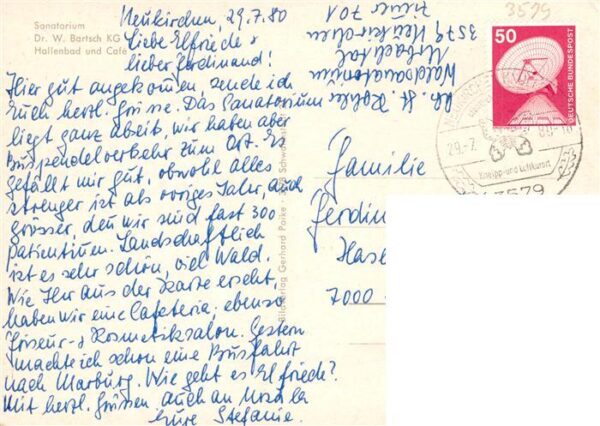 Sanatorium
Dr. W. Bartsch KG
Hallenbad und Café
Neukirchen, 29.7.80
Liebe Elfriede &
lieber Ferdinand!
Hier gut angekommen, sende ich
Euch herzl. Grüsse. Das Sanatorium
liegt ganz abseits, wir haben aber
Buspendelverkehr zum Ort. Es
gefällt mir gut, obwohl alles
strenger ist als voriges Jahr, auch
grösser, denn wir sind fast 300
Patientinnen. Landschaftlich
ist es sehr schön, viel Wald.
Wie Ihr aus der Karte erseht,
haben wir eine Cafeteria, ebenso
Friseur- & Kosmetiksalon. Gestern
machte ich schon eine Busfahrt
nach Marburg. Wie geht es Elfriede?
Mit herzl. Grüssen auch an
Eure Stefanie.
Abs. St. Köhler
Waldsanatorium
Urbachtal
3579 Neukirchen
Zimmer 701
Bildverlag Gerhard Parke
3579
50
DEUTSCHE BUNDESPOST
29.-7.
80-18
Kneipp- und Luftkurort
3579
Familie
Ferdin
Hase
7000